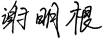 谢明根